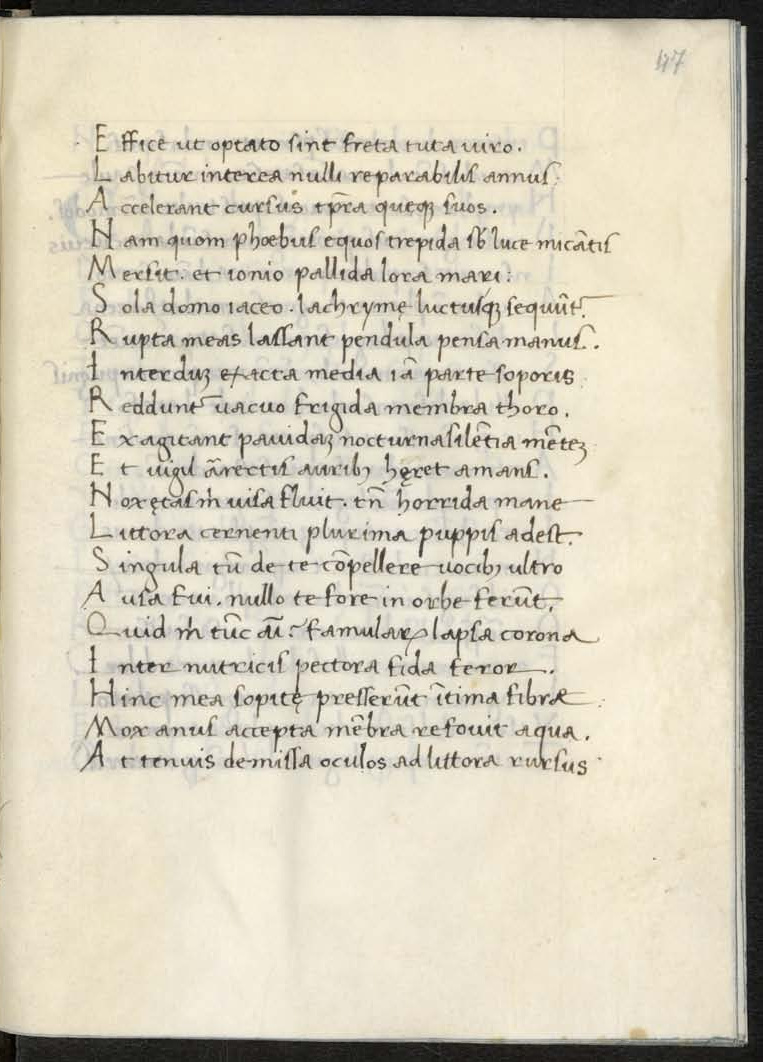 47
Effice ut optato sint freta tuta uiro.
Labitur interea nulli reparabilis annus.
Accelerant cursus tp̄ra queq; suos.
Nam quom phœbus equos trepida sb̄ luce micātis
Mersit. et ionio pallida lora mari:
Sola domo iaceo. lachrymę luctusq; sequūt᷑.
Rupta meas lassant pendula pensa manus.
Interduꝫ exacta media iā parte soporis.
Reddunt᷑ uacuo frigida membra thoro.
Exagitant pauidaꝫ nocturna silētia mēteꝫ
Et uigil ārectis aurib; hęret amans.
Nox ętas m̄ uisa fluit. tn̄ horrida mane
Littora cernenti plurima puppis adest.
Singula tū de te cōpellere uocib; ultro
Ausa fui. nullo te fore in orbe ferūt.
Quid m̄ tūc aī? famulaꝝ lapsa corona
Inter nutricis pectora fida feror.
Hinc mea sopitę presserūt ītima fibræ.
Mox anus accepta mēbra refouit aqua.
At tenuis demissa oculos ad littora rursus